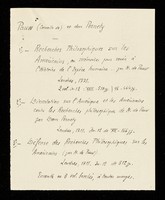 Pauw (Corneille) et dom Pernety
1 – Recherches Philosophiques sur les
Américains, ou mémoires pour servir à
l'Histoire de l'Espèce humaine (par M. de Pauw)
Londres, 1771.
2 — Dissertation sur l'Amérique et les Américains
contre les Recherches Philosophiques de M. de Pauw
par Dom Pernety
Londres, 1771,
3 — Défense des Recherches Philosophiques sur les
Américains (par M. de Pauw)
Londres, 1771,